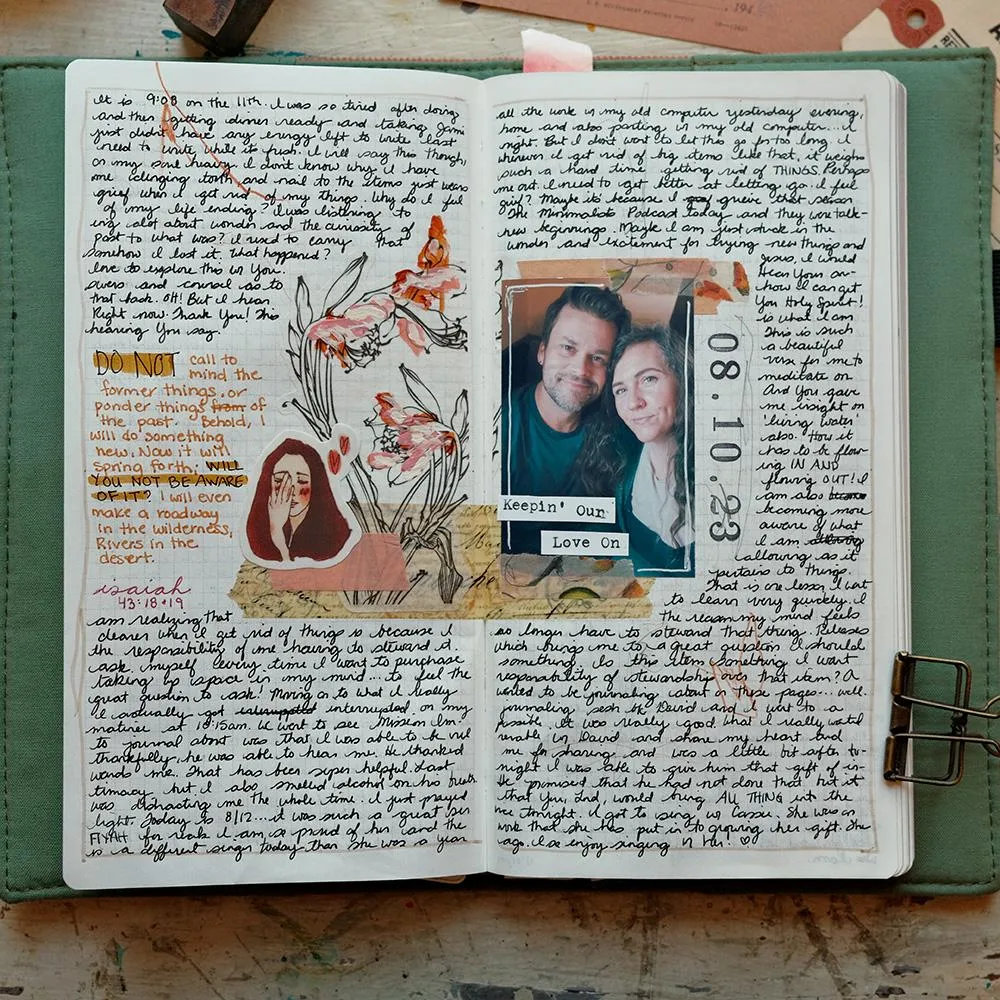 It is 9:08 on the 11th. I was so tired after doing
all the work in my old computer yesterday evening,
and then getting dinner ready and taking Jami
home and also parting w/ my old computer...I
just didn't have any energy left to write last
night. But I don't want to let this go for too long. I
need to write while it's fresh. I will say this though,
whenever I get rid of big items like that, it weighs
on my soul heavy. I don't know why I have
such a hard time getting rid of THINGS. Perhaps
me clinging tooth and nail to the items just wears
me out. I need to get better at letting go. I feel
grief when I get rid of my things. Why do I feel
grief? Maybe it's because I grieve that season
of my life ending? I was listening to
The Minimalists Podcast today and they were talk-
ing alot about wonder and the curiosity of
new beginnings. Maybe I am just stuck in the
past to what was? I used to carry that
wonder and excitement for trying new things and
somehow I lost it. What happened?
Jesus, I would
love to explore this w/ You.
Hear Your an-
swers and counsel as to
how I can get
that back. OH! But I hear
You Holy Spirit!
Right now. Thank You! This
is what I am
hearing You say.
DO NOT call to
mind the
former things, or
ponder things from of
the past. Behold, I
will do something
new, Now it will
spring forth; WILL
YOU NOT BE AWARE
OF IT? I will even
make a roadway
in the wilderness,
Rivers in the
desert.
isaiah
43:18+19
Keepin' Our
Love On
08.10.23
This is such
a beautiful
verse for me to
meditate on.
And You gave
me insight on
'living water'
also. How it
has to be flow-
ing IN AND
flowing OUT! I
am also
becoming more
aware of what
I am
allowing as it
pertains to things.
That is one lesson I want
to learn very quickly. I
am realizing that
the reason my mind feels
clearer when I get rid of things is because I
no longer have to steward that thing. Releases
the responsibility of me having to steward it.
which brings me to a great question I should
ask myself every time I want to purchase
something. Is this item something I want
taking up space in my mind...to feel the
responsability of stewardship over that item? A
great question to ask! Moving on to what I really
wanted to be journaling about on these pages...well.
I actually got interrupted interrupted on my
journaling sesh by David and I went to a
matinee at 10:15am. We went to see Mission Im-
possible. It was really good. What I really wanted
to journal about was that I was able to be vul
nerable w/ David and share my heart and
thankfully, he was able to hear me. He thanked
me for sharing and was a little bit after to-
wards me. That has been super helpful. Last
night I was able to give him that gift of in-
timacy but I also smelled alcohol on his breath
He promised that he had not done that but it
was distracting me the whole time. I just prayed
that You, Lord, would bring ALL THING into the
light. Today is 8/12...it was such a great ser
vice tonight. I got to sing w/ Cassie. She was on
FIYAH for real. I am so proud of her and the
work that she has put in to growing her gift. She
is a different singer today than she was a year
ago. I so enjoy singing w/ her!